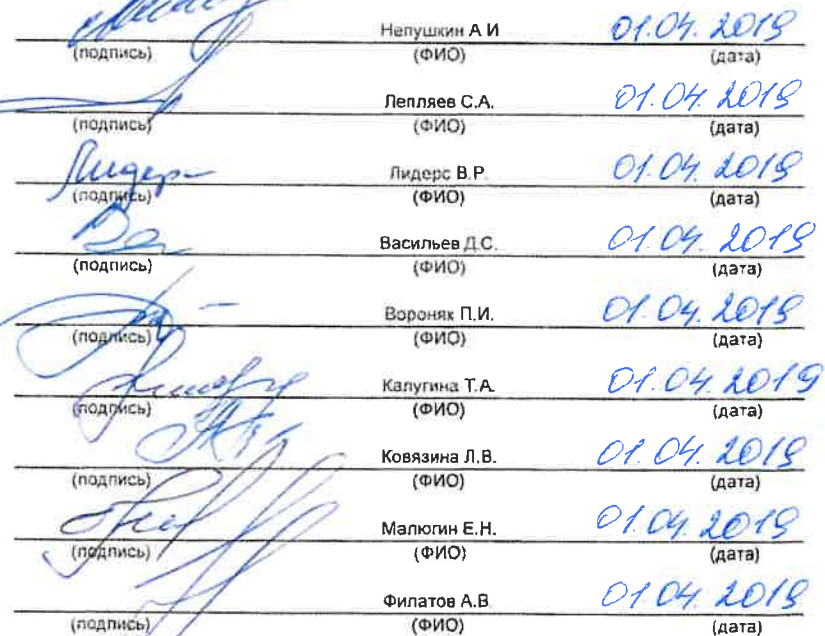 Непушкин А И 01.04.2019
(подпись) (ФИО) (дата)
Лепляев С.А. 01.04.2019
(подпись) (ФИО) (дата)
Лидер Лидерс В.Р. 01.04.2019
(подпись) (ФИО) (дата)
Васильев Д.С. 01.04.2019
(подпись) (ФИО) (дата)
Вороняк П.И. 01.04.2019
(подпись) (ФИО) (дата)
Калугина Т.А. 01.04.2019
(подпись) (ФИО) (дата)
Ковязина Л.В. 01.04.2019
(подпись) (ФИО) (дата)
Малюгин Е.Н. 01.04.2019
(подпись) (ФИО) (дата)
Филатов А.В. 01.04.2019
(подпись) (ФИО) (дата)